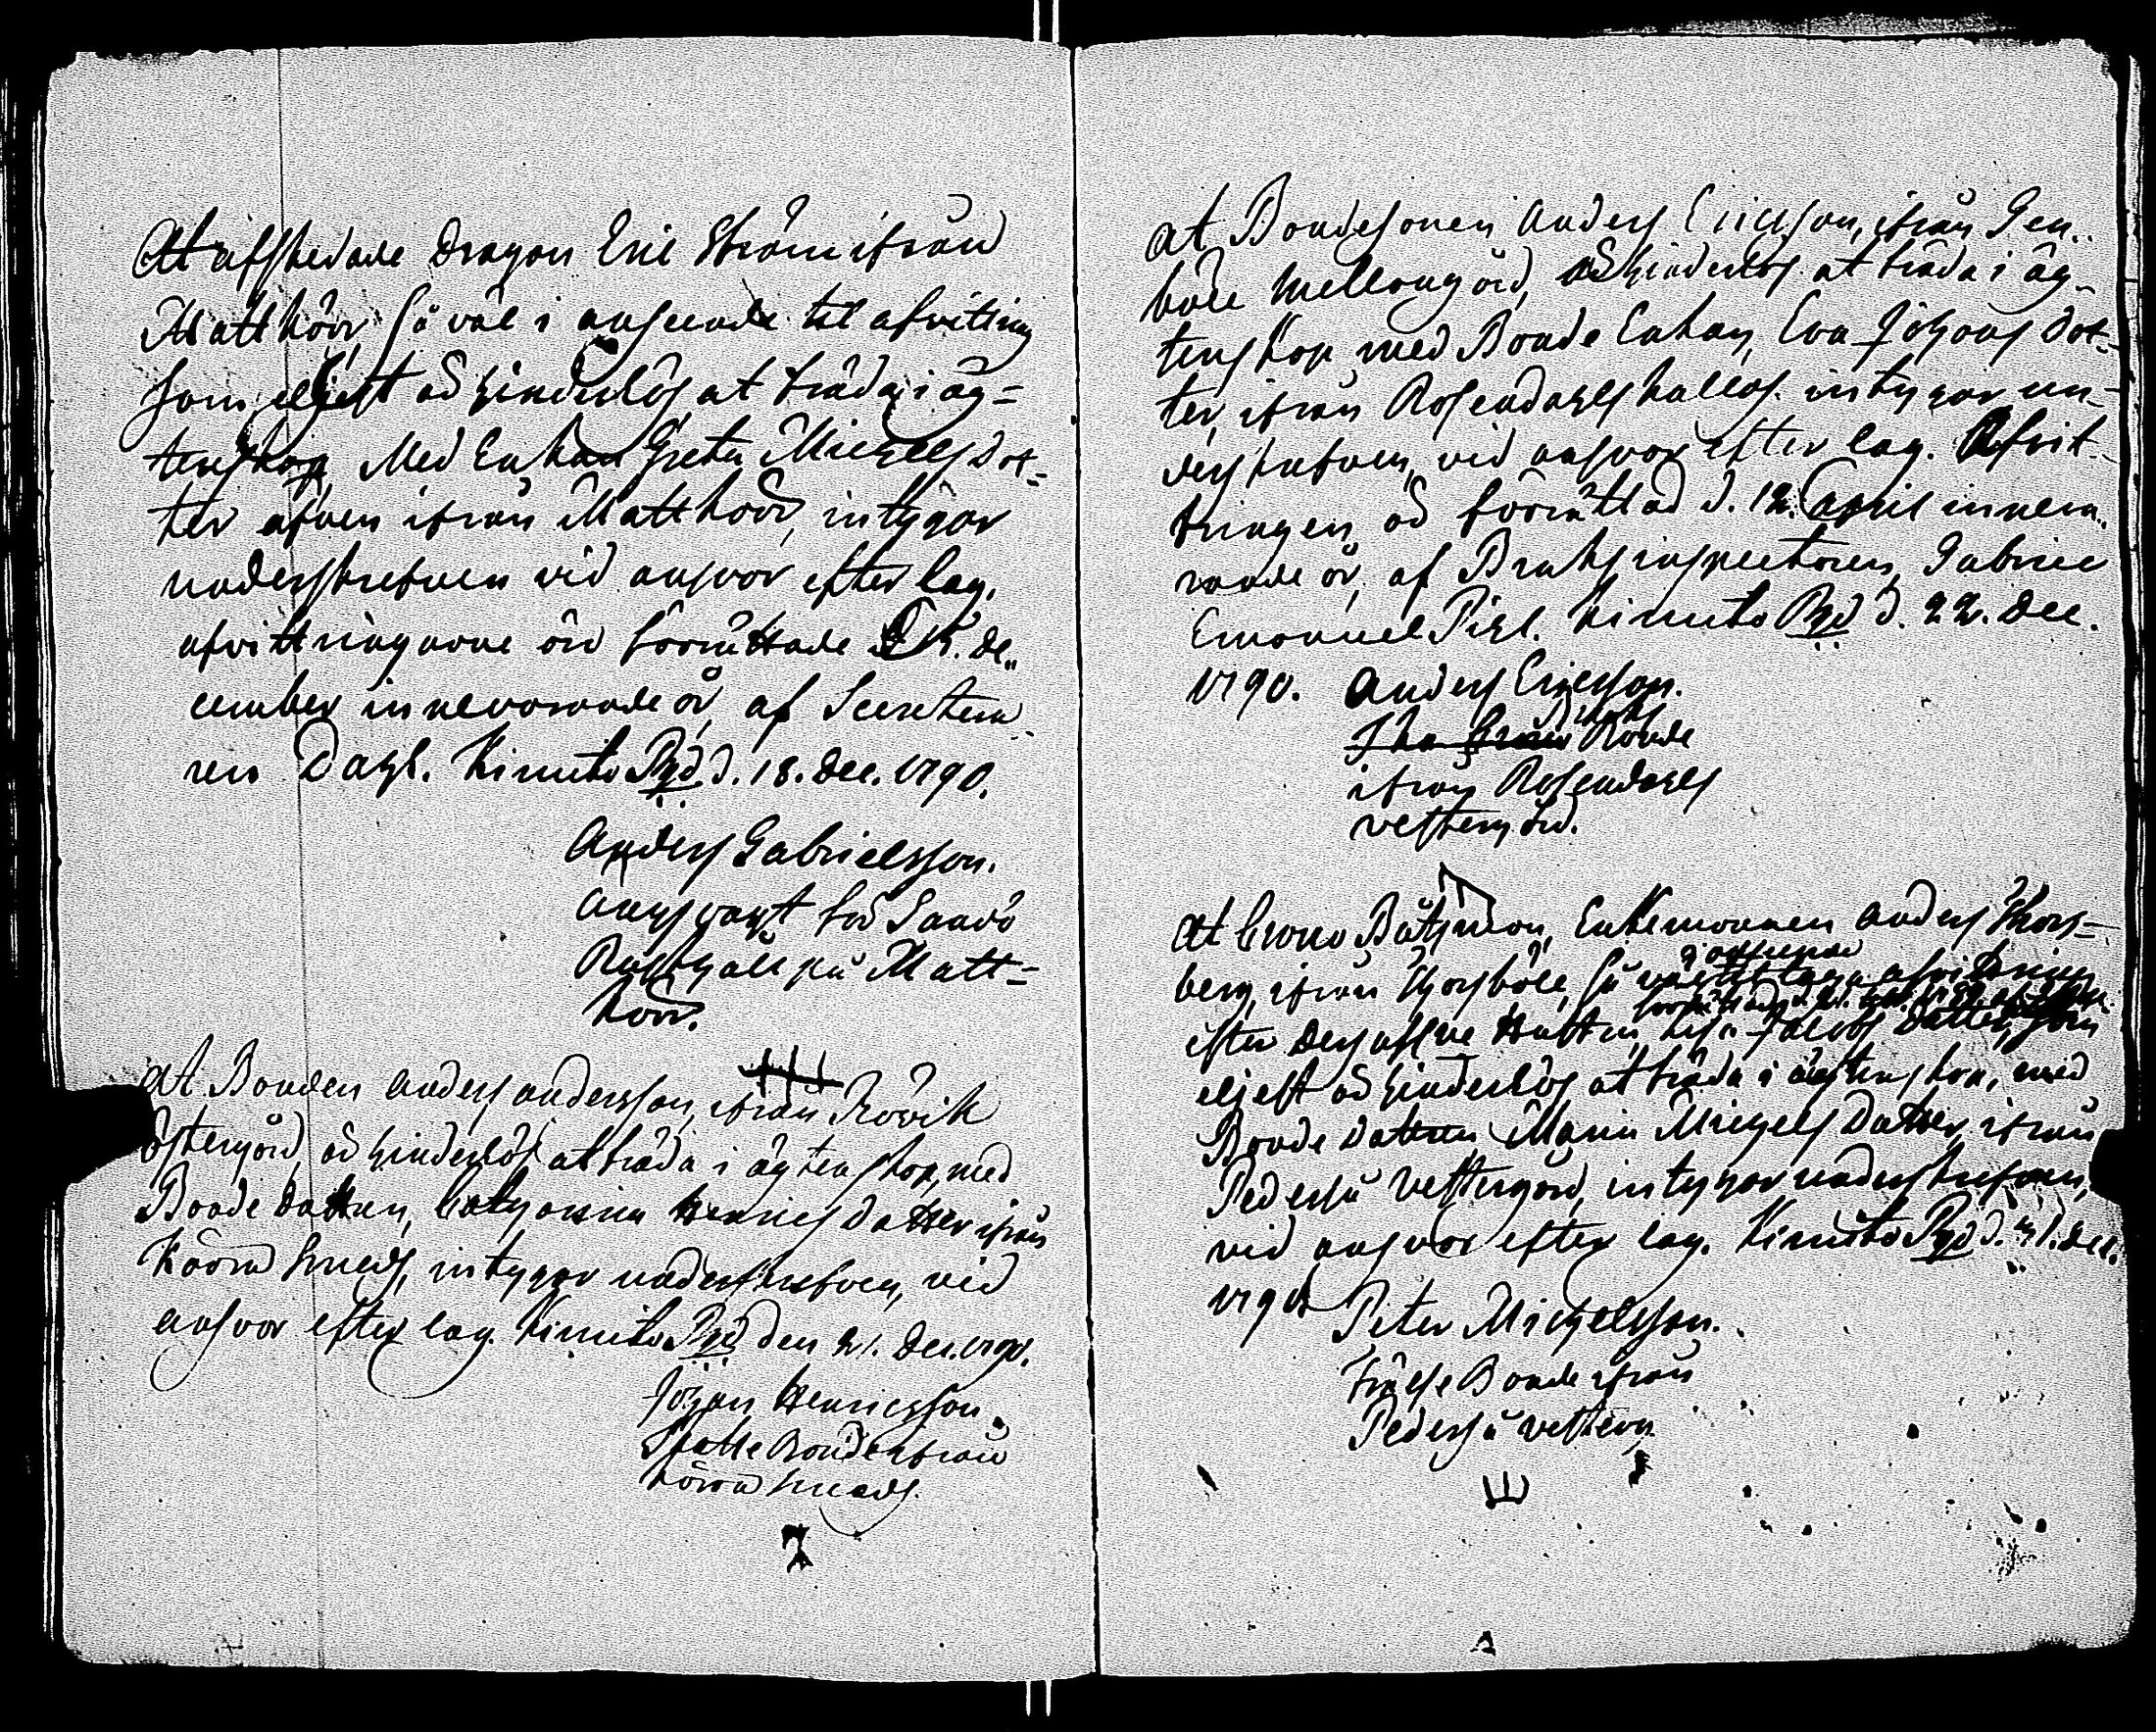 At afskedade Dragon Eric Ström ifrån
Mattkärr, så väl i anseende til afvitring
som eljest är hinderlös at träda i äg-
tenskap, Med Enkan Greta Michels dot-
ter äfven ifrån Mattkärr, intygar
underskrefven vid answar efter lag.
afvittringarne äro förrättade d. 15. De„
cember innevarande år, af Secretera
ren Dahl. Kimito Pgd. d. 18. Dec. 1790.
Anders Gabrielsson.
Rusthåll på Matt=
kärr.
At Bonden Anders andersson, ifrån Rövik
östergård, är hinderlös at träda i ägtenskap, med
Bonde dottren, Catharina Henrics Dotter ifrån
Kärra Smeds, intygar underskrefven, vid
answar efter lag. Kimito Pgd den 21. Dec. 1790.
Johan Henricsson
Skatte Bonde ifrån
Kärra Smeds.
at Bondesonen Anders Ericsson, ifrån Gen„
böle Mellangård, är hinderlös at träda i äg-
tenskap med Bonde Enkan, Eva Johans dot-
ter, ifrån Rosendahls intygar un-
derskrefven, vid answar efter lag. Afvit-
tringen är förrättad d. 12. April inneva„
rande år, af Bruksinspectoren, Gabriel
Emanuel Pihl. Kimito Pgd d. 22. Dec.
1790. Anders Ericsson.
Bonde
ifrån Rosendahls
vestergård.
At Crono Båtsman, Enkemannen Anders Thors=
berg, ifrån Thorsböle, så afvittring
efter dess afledne Hustru, Lisa Jacobs Dotter, som
eljest är hinderlös, at träda i ägtenskap, med
Bonde dottren Maria Michels Dotter, ifrån
Pederså Vestergård, intygar underskrefven,
vid answar efter lag. Kimito Pgd d. 31. Dec.
1790. Peter Michelsson.
Frälse Bonde ifrån
Pederså vesterg.